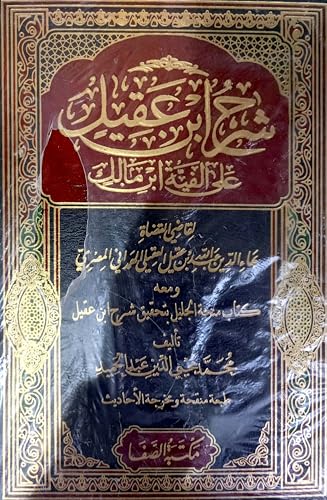 شرح ابن عقيل
على ألفية ابن مالك
لقاضي القضاة
بهاء الدين عبد الله بن عقيل العقيلي الهمداني المصري
ومعه
كتاب منحة الجليل بتحقيق شرح ابن عقيل
تأليف
محمد محيي الدين عبد الحميد
طبعة منقحة ومخرجة الأحاديث
مكتبة الصفا